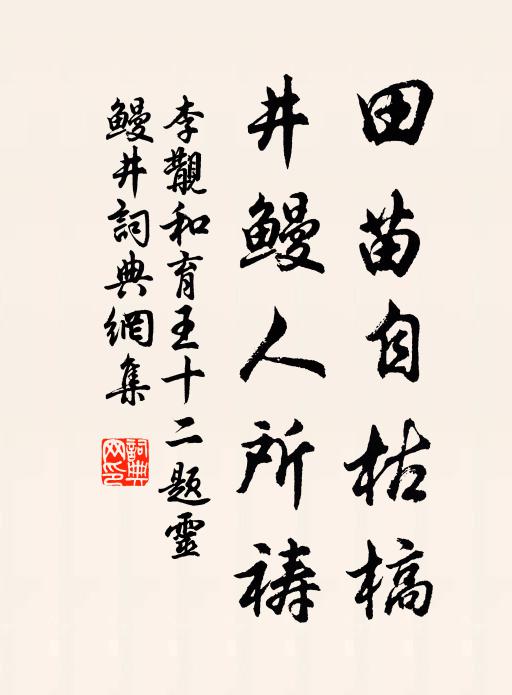 田苗自枯槁
井鳗人所祷
李觏和育王十二题灵
鳗井词典网集
词典网印